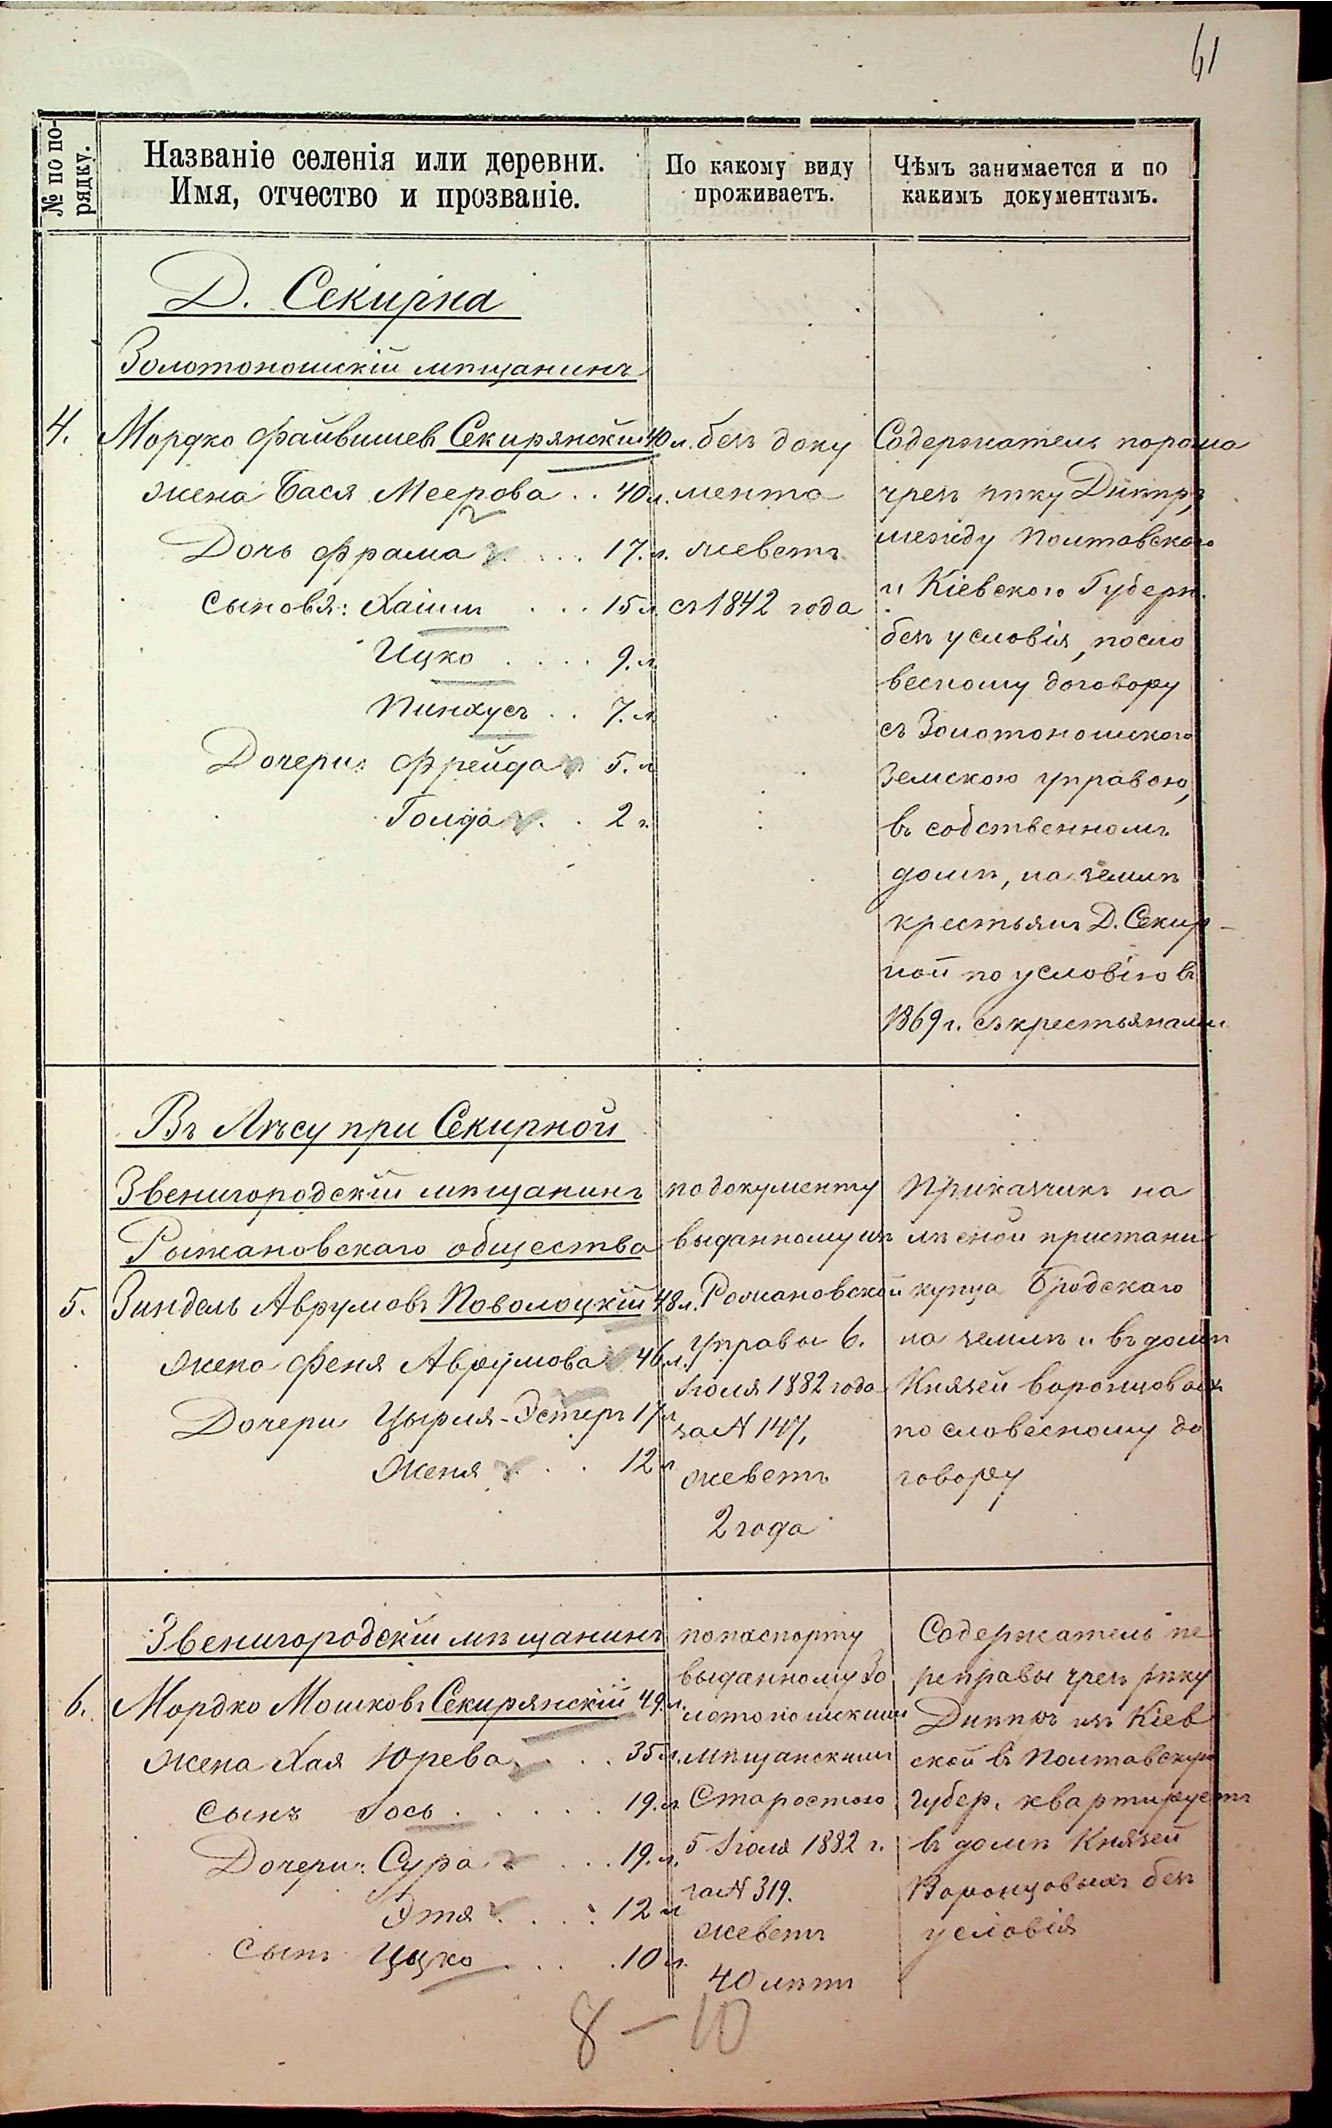 61
№ по по-
рядку.
Названіе селенія или деревни.
Имя, отчество и прозваніе.
По какому виду
проживаетъ.
Чѣмъ занимается и по
какимъ документамъ.
Д. Секирна
Золотоношскій мѣщанинъ
4.
Мордко Файвишев Секирянскій 40 л.
жена Бася Меерова .. 40 л.
Дочь Фрама ... 17. л.
сыновя: Хаимъ ... 15 л.
Ицко .... 9. л.
Пинхусъ .. 7. л.
Дочери: Фрейда 5. л.
Голда .. 2 г.
безъ доку
мента
живетъ
съ 1842 года
Содержатель порома
чрезъ рѣку Днѣпръ,
между Полтавскою
и Кіевскою Губерн.
безъ условія, посло
весному договору
съ Золотоношскою
Земскою управою,
въ собственномъ
домѣ, на землѣ
крестьянъ Д. Секир-
ной по условію въ
1869 г. съ крестьянами
Въ Лѣсу при Секирной
Звенигородскій мѣщанинъ
Рыжановскаго общества
5.
Зиндель Аврумовъ Поволоцкій 48 л.
жена Феня Аврумова 46 л.
Дочери Цырля-Эстеръ 17 л.
Женя ... 12 л
по документу
выданному изъ
Рыжановской
Управы 6.
Іюля 1882 года
за № 147,
живетъ
2 года
Приказчикъ на
лѣсной пристани
купца Бродскаго
на землѣ и въ домѣ
Князей Воронцовыхъ
по словесному до
говору
Звенигородскій мѣщанинъ
6.
Мордко Мошковъ Секирянскій 49. л.
жена Хая Юрева .. 35 л.
сынъ Іось ...... 19. л
Дочери: Сура ... 19. л.
Этя .... 12 л
сынъ Ицко ... 10 л.
по паспорту
выданному Зо
лотоношскимъ
мѣщанскимъ
Старостою
5 Іюля 1882 г.
за № 319.
живетъ
40 лѣтъ
Содержатель пе
реправы чрезъ рѣку
Днѣпръ изъ Кіев
ской въ Полтавскую
губер. квартируетъ
въ домѣ Князей
Воронцовыхъ безъ
условія
8 — 10